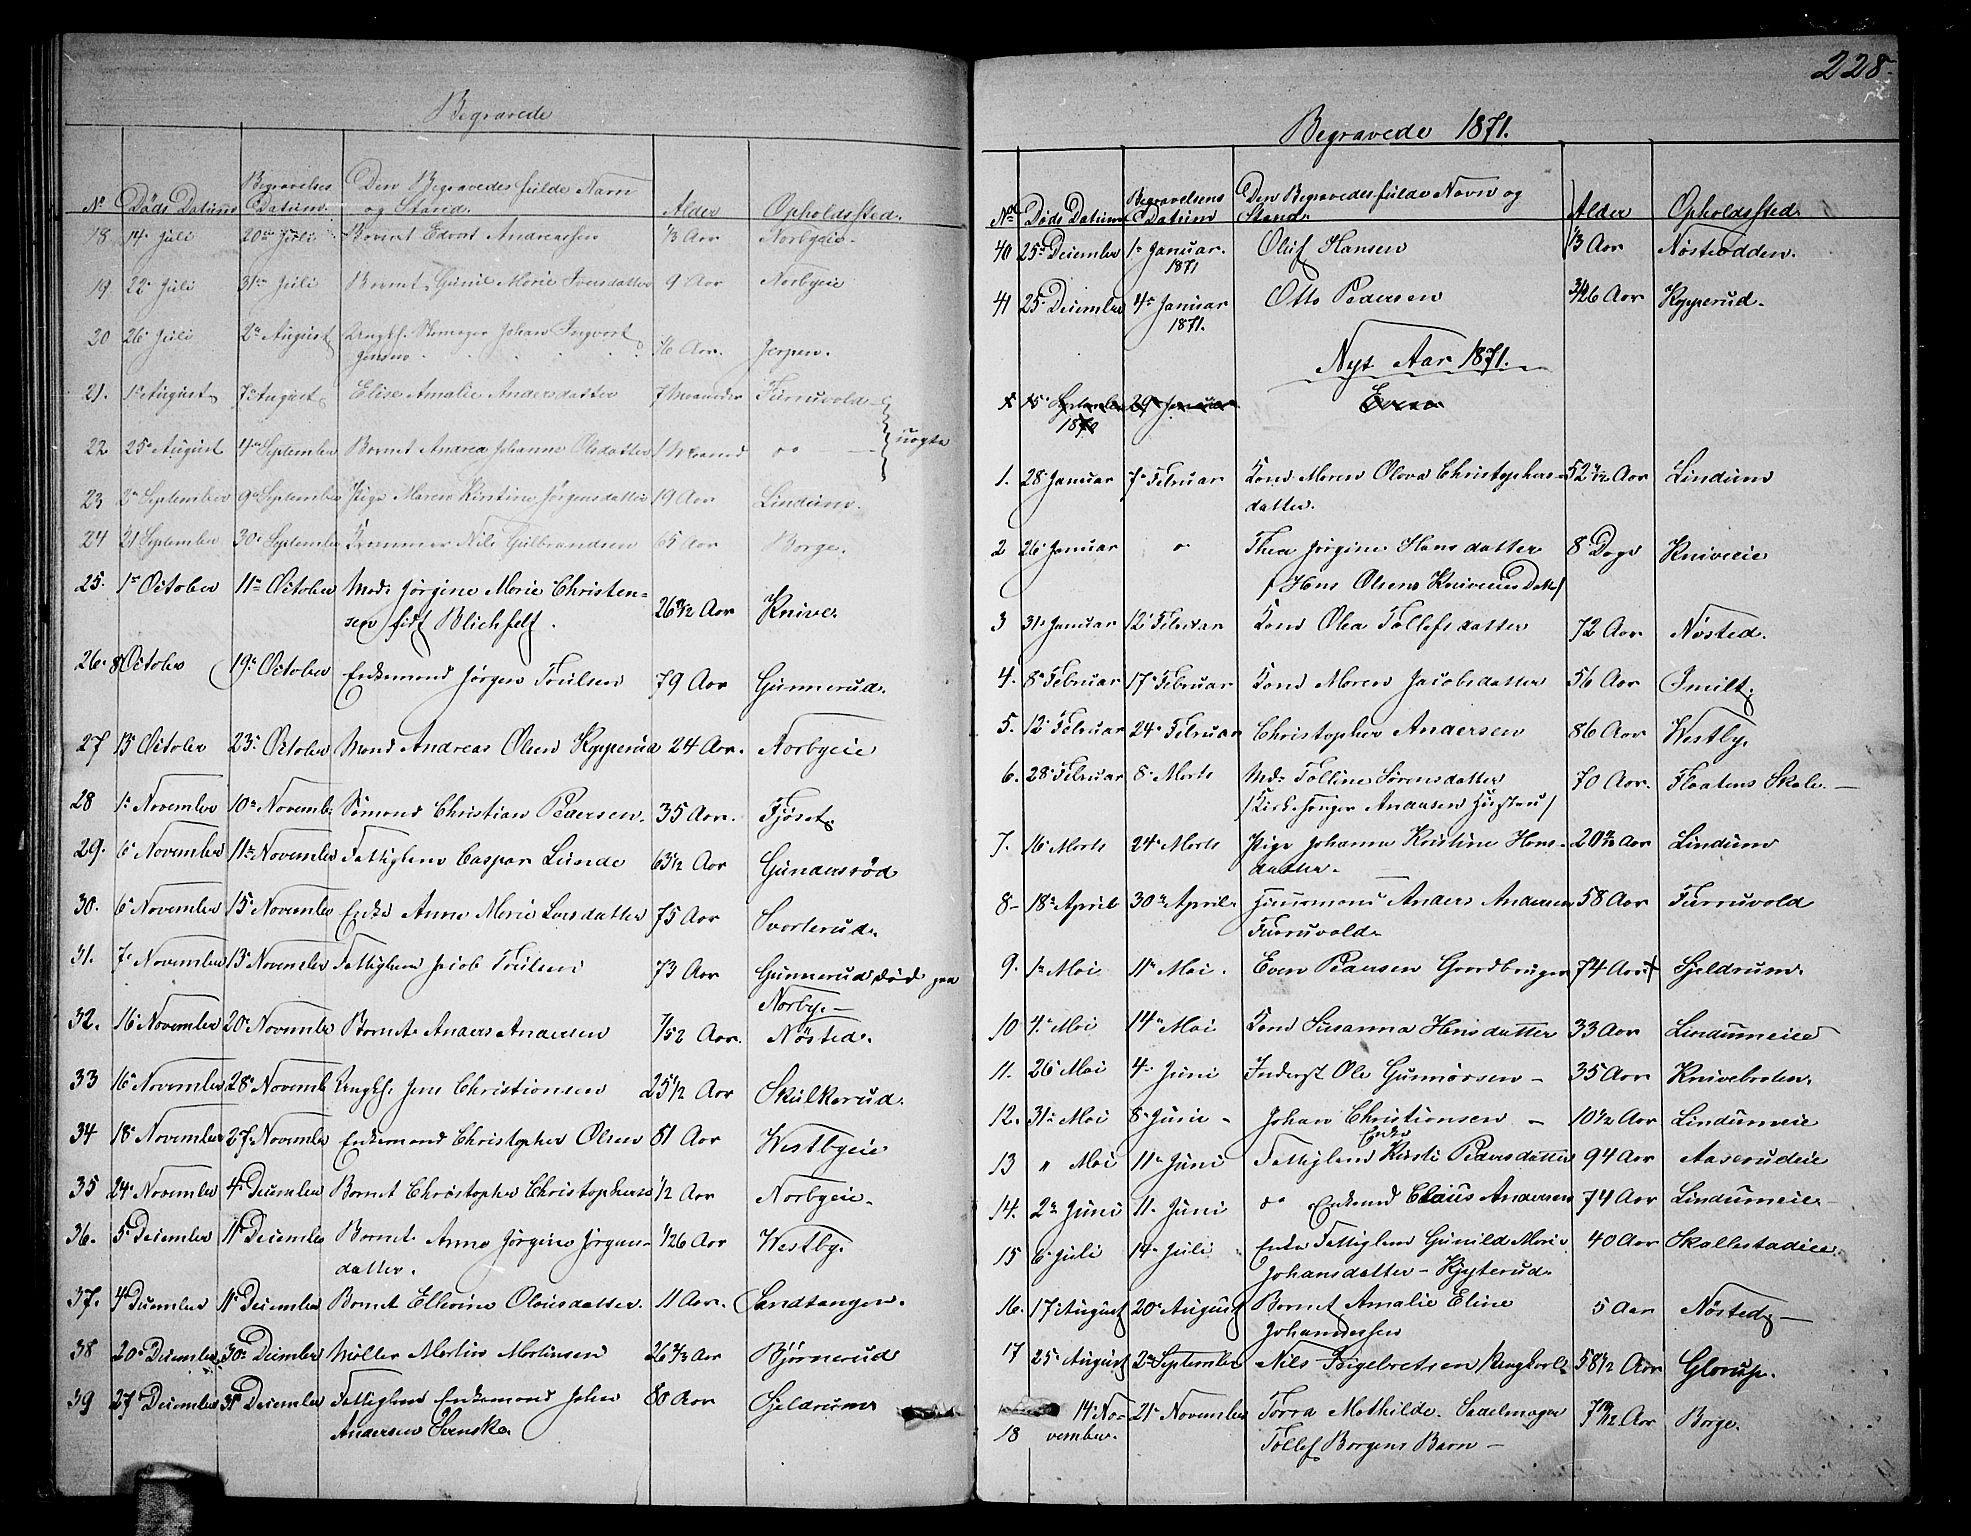 Begravede
No Døds Datum Begravelses Datum. Den Begravedes fulde Navn og Stand. Alder Opholdssted.
18 14de Juli 20de Juli Barnet Edvart Andreassen 1/3 Aar Norbyeie
19 22de Juli 31te Juli Barnet Gunil Marie Iversdatter 9 Aar Norbyeie
20 26de Juli 2den August Ungkl. Johan Ingvart
Jensen 16 Aar. Jerpen.
21. 1ste August 7de August Elise Amalie Andersdatter 7 Maaneder Furruvold
22 25de August 4de September Barnet Andrea Johanne Olsdatter 1 Maaned do uægte
23 2den September 9de September Pige Maren Kirstine Jørgensdatter 19 Aar Lindum.
24 21 September 30te September Nils Gulbrandsen 65 Aar Borge.
25. 1ste October 11te October Mad. Jørgine Marie Christen-
sen født Blichfelt. 26 Aar Knive.
26. 8 October 19de October Enkemand Jørgen Trulsen 79 Aar Gunnerud.
27 13de October 23de October Mand Andreas Olsen Kopperud 24 Aar. Norbyeie
28 1ste November 10de Novemb. Sømand Christian Pedersen. 35 Aar. Fjøset
29. 6te November 11te November Fattiglem Caspar Lunde 63 1/2 Aar Gundersrød
30. 6te November 15de November Enke Anne Marie Larsdatter 75 Aar Svarterud.
31. 7de November 13de November Fattiglem Jacob Trulsen 73 Aar Gunnerud død paa
Norby.
32. 16 November 20 November Barnet Anders Andersen 7/52 Aar. Nøsted.
33 16de November 28de Novemb Ungkl. Jens Christiansen 25 1/2 Aar Skulkerud.
34 18de November 27de November Enkemand Christopher Olsen 81 Aar Westbyeie
35 24de November 4de December Barnet Christopher Christophersen 1/2 Aar Norbyeie.
36. 5te December 11te December Barnet Anne Jørgine Jørgens-
datter. 1/26 Aar Westby.
37. 4de December 11te December Barnet Ellevine Olausdatter. 11 Aar. Sandtangen.
38 20de December 30te December Møller Martin Martinsen 26 3/4 Aar Bjørnerud
39 27de December 31te December Fattiglem Enkemand Johan
Andersen Svenske. 80 Aar Gjeldrum
228.
Begravede 1871.
No Døds Datum Begravelsens Datum Den Begravedes fulde Navn og Stand. Alder Opholdssted.
40 25de December 1ste Januar. 1871 Oluf Hansen 1/3 Aar Nøsteødden.
41 25de December 4de Januar 1871. Otto Pedersen 3/26 Aar Kopperud.
Nyt Aar 1871.
1 15de September 1870 29de Januar Even
1. 28 Januar 7de Februar Kone Maren Olava Christophers-
datter. 52 Aar Lindum
2 26 Januar " Thea Jørgine Hansdatter 8 Dage Kniveeie
/ Hans Olsens Kniveeies Datter /
3 31te Januar 12te Februar Kone Olea Tollefsdatter 72 Aar Nøsted.
4. 8de Februar 17de Februar Kone Maren Jacobsdatter 56 Aar Smilt.
5. 12te Februar 24de Februar Christopher Andersen 86 Aar Westby.
6. 28de Februar 8de Marts Mad. Tolline Sørensdatter
/ Kirkesanger Andersens Hustru / 70 Aar. Floatens Skole.
7. 16de Marts 24de Marts Pige Johanne Kristine Hans-
datter. 20 Aar Lindum
8 18de April 30te April Huusmand Anders Andersen
Furruvold. 58 Aar Furruvold
9. 1ste Mai 11te Mai. Even Pedersen Gaardbruger 74 Aar Gjeldrum.
10 4de Mai 14de Mai Kone Susanna Hansdatter 33 Aar Lindumeie
11. 26de Mai 4de Juni Inderst Ole Gunnersen 35 Aar Knivebraten.
12. 31te Mai 8de Juni Johan Christiansen 10 1/2 Aar Lindumeie
13 " Mai 11te Juni Fattiglem Enke Kirsti Pedersdatter 94 Aar Aaserudeie
14. 2den Juni 11. Juni do Enkemd Claus Andersen 74 Aar Lindumeie
15 6te Juli 14de Juli Enke Fattiglem Gunild Marie
Johansdatter Kjyterud. 40 Aar Skallestadeie.
16. 17 August 20de August Barnet Amalie Eline
Johannessen 5 Aar Nøsted
17 25de August 2den September Nils Ingebretsen Ungkarl 58 1/2 Aar Glorup.
18 14de November. 21de November Torra Mathilde. Sadelmager
Tollef Borgens Barn 7 10/12 Aar Borge.